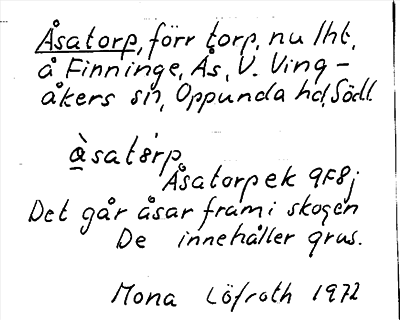 Åsatorp, förr torp, nu lht,
å Finninge, Ås, V. Ving-
åkers sn, Oppunda hd, Södl.
àsatà̊rp
Åsatorp ek 9F8j
Det går åsar fram i skogen
De innehåller grus.
Mona Löfroth 1972